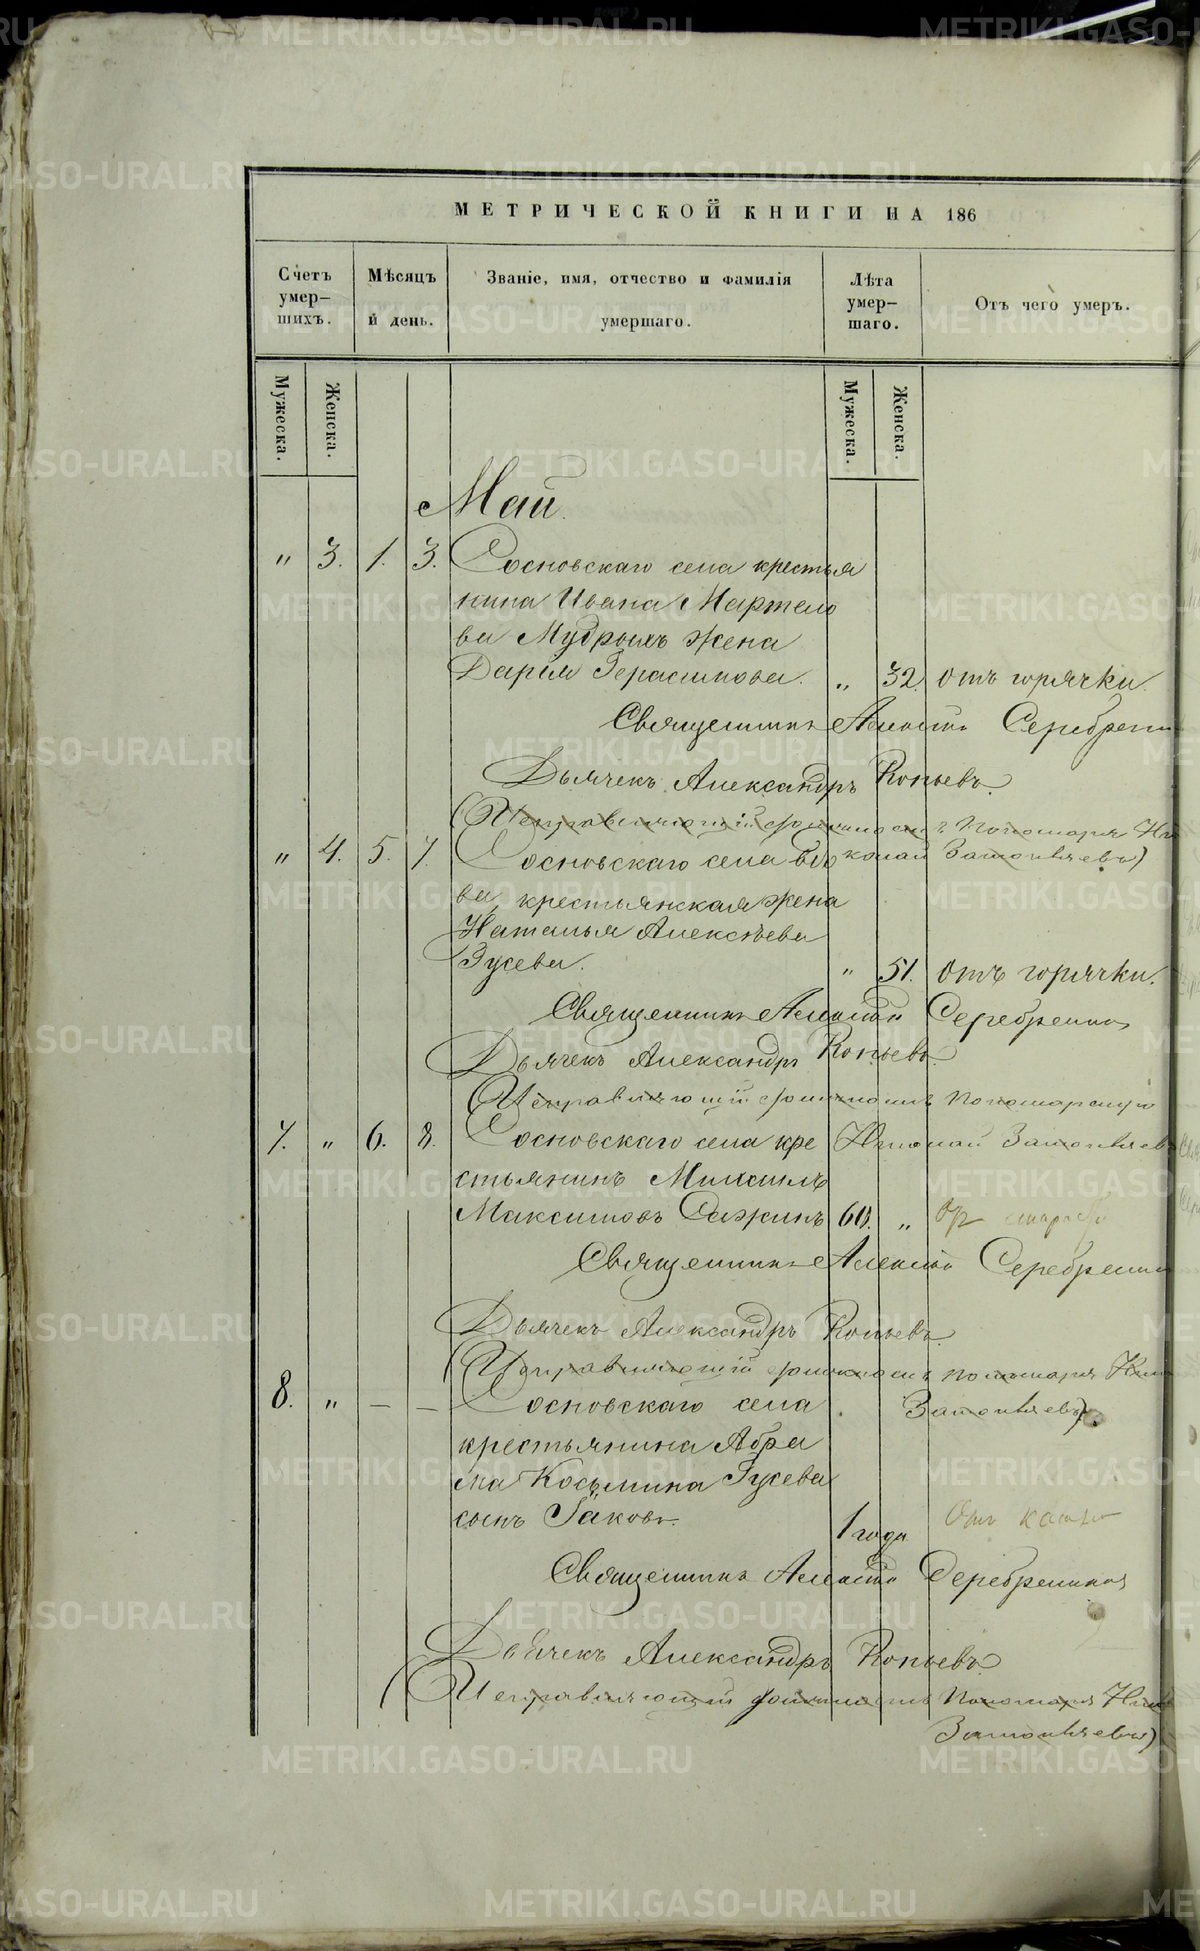 МЕТРИЧЕСКОЙ КНИГИ НА 186
Счетъ умер-шихъ.
Мѣсяцъ и день.
Званіе, имя, отчество и фамилія умершаго.
Лѣта умер-шаго.
Отъ чего умеръ.
Мужеска. Женска. Мужеска. Женска.
Май.
" 3. 1. 3. Сосновскаго села крестья
нина Ивана Мартемо
ва Мудрыхъ жена
Дарья Герасимова. " 32. отъ горячки.
Священникъ Алексій Серебрени
Дьячекъ Александръ Копьевъ.
(Исправляющій должность Пономаря Ни
" 4. 5. 7. Сосновскаго села вдо колай
ва, крестьянская жена
Наталья Алексѣева
Гусева. " 51. отъ горячки.
Священникъ Алексій Серебрениковъ
Дьячекъ Александръ Копьевъ.
Исправляющій должность Пономарскую
7. " 6. 8. Сосновскаго села кре Николай
стьянинъ Михаилъ
Максимовъ Сажинъ 60. "
Священникъ Алексій Серебрени
Дьячекъ Александръ Копьевъ.
(Исправляющій должность пономаря Ник
8. " — — Сосновскаго села
крестьянина Абра
ма Косьмина Гусева
сынъ Іаковъ. 1 года
Священникъ Алексій Серебрениковъ
Дьячекъ Александръ Копьевъ.
(Исправляющій должность Пономаря Ник
METRIKI.GASO-URAL.RU